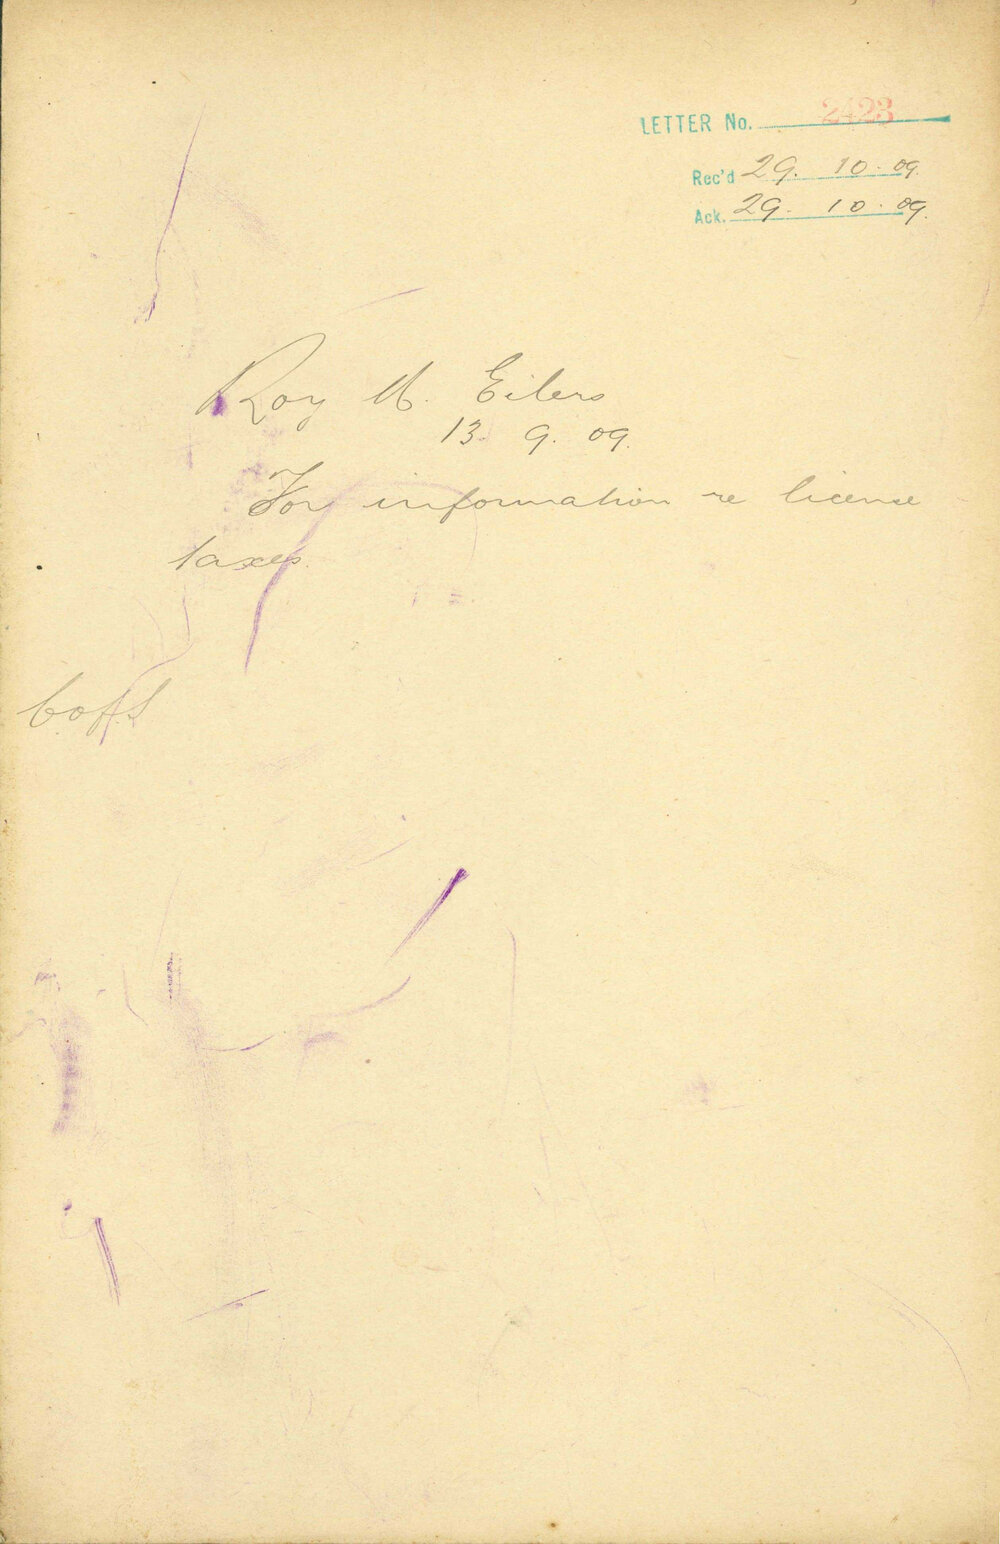 LETTER No. 2423
Rec'd 29. 10. 09.
Ack. 29. 10. 09.
Roy M. Eilers
13. 9. 09.
For information re license
taxes.